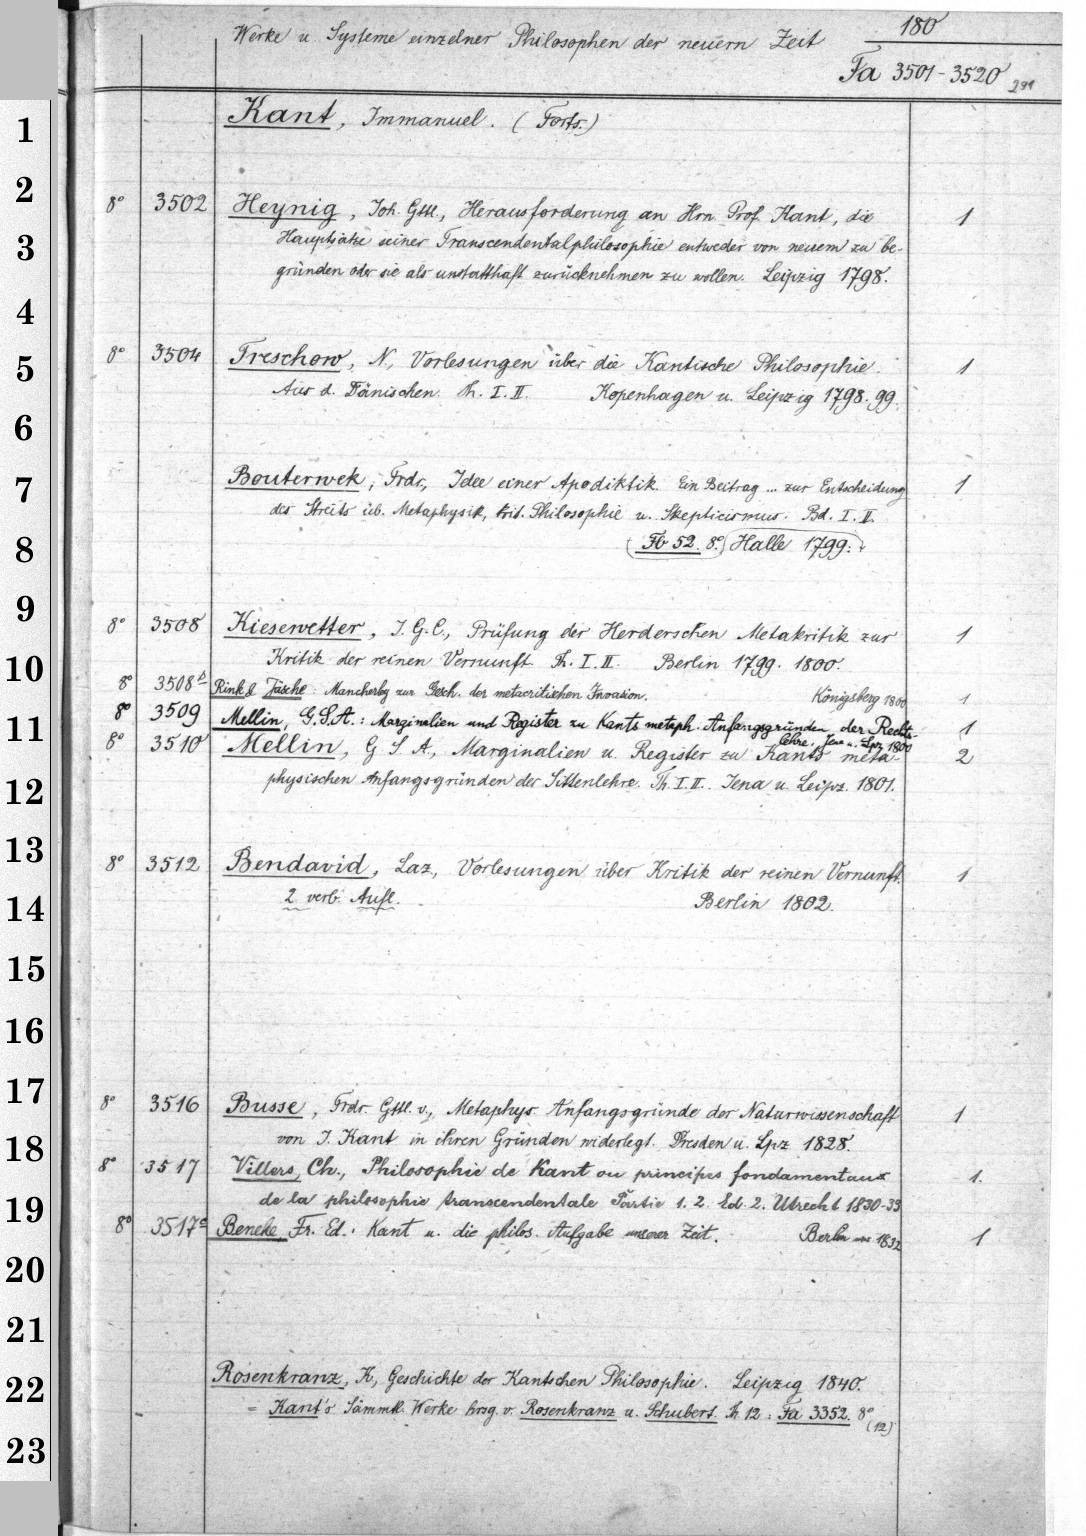 180
Werke u. Systeme einzelner Philosophen der neuern Zeit
Fa 3501-3520
291
Kant, Immanuel. (Forts.)
8° 3502 Heynig, Joh. Gttl., Herausforderung an Hrn. Prof. Kant, die 1
Hauptsätze seiner Transcendentalphilosophie entweder von neuem zu be-
gründen oder sie als unstatthaft zurücknehmen zu wollen. Leipzig 1798.
8° 3504 Treschow, N., Vorlesungen über die Kantische Philosophie. 1
Aus d. Dänischen. Th. I. II. Kopenhagen u. Leipzig 1798.99.
Bouterwek, Frdr., Idee einer Apodiktik. Ein Beitrag ... zur Entscheidung 1
des Streits üb. Metaphysik, krit. Philosophie u. Skepticismus. Bd. I. II.
(Fb 52. 8°.) Halle 1799.
8° 3508 Kiesewetter, J. G. C., Prüfung der Herderschen Metakritik zur 1
Kritik der reinen Vernunft. Th. I. II. Berlin 1799. 1800.
8° 3508b Rink & Jäsche: Mancherley zur Gesch. der metacritischen Invasion. Königsberg 1800 1
8° 3509 Mellin, G.S.A.: Marginalien und Register zu Kants metaph. Anfangsgründen der Rechts- 1
lehre. Jena u. Lpz 1800
8° 3510 Mellin, G S A., Marginalien u. Register zu Kants meta- 2
physischen Anfangsgründen der Sittenlehre. Th. I. II. Jena u. Leipz. 1801.
8° 3512 Bendavid, Laz., Vorlesungen über Kritik der reinen Vernunft. 1
2. verb. Aufl. Berlin 1802.
8° 3516 Busse, Frdr. Gttl. v., Metaphys. Anfangsgründe der Naturwissenschaft 1
von I. Kant in ihren Gründen widerlegt. Dresden u. Lpz 1828.
8° 3517 Villers, Ch., Philosophie de Kant ou principes fondamentaux 1.
de la philosophie transcendentale Partie 1. 2. Ed. 2. Utrecht 1830-33
8° 3517a Beneke, Fr. Ed.: Kant u. die philos. Aufgabe unserer Zeit. Berlin 1832 1
Rosenkranz, K., Geschichte der Kantschen Philosophie. Leipzig 1840.
= Kant's Sämmtl. Werke hrsg. v. Rosenkranz u. Schubert. Th 12 : Fa 3352. 8°
(12)
1
2
3
4
5
6
7
8
9
10
11
12
13
14
15
16
17
18
19
20
21
22
23